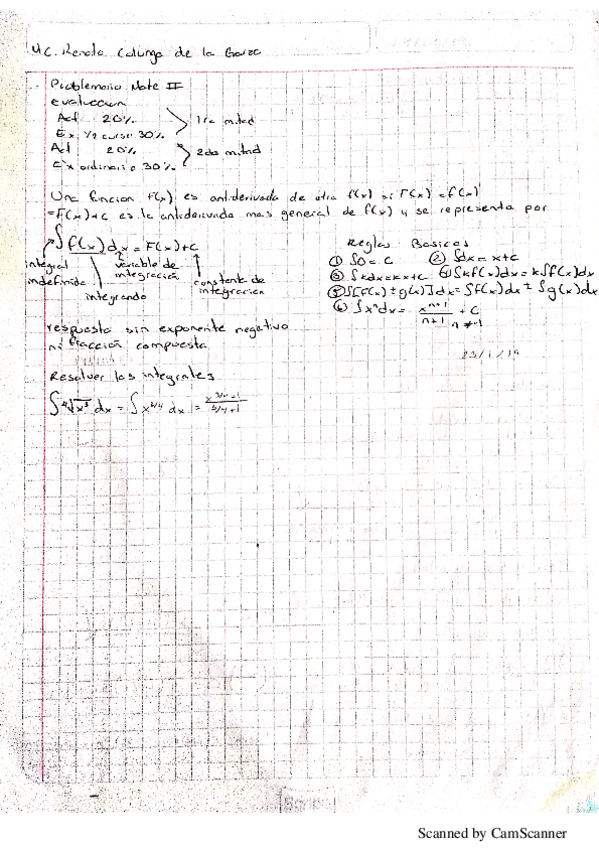 M.C. Renato Colunga de la Garza
Problemario Mate II
evaluacion
Act 20%
Ex. 1/2 curso 30%
1ra mitad
Act 20%
Ex ordinario 30%
2da mitad
Una funcion F(x) es antiderivada de otra f(x) si F'(x) = f(x)
= F(x)+c es la antiderivada mas general de f(x) y se representa por
∫f(x)dx = F(x)+c
integral indefinida
integrando
variable de integración
constante de integracion
Reglas Basicas
① ∫0 = C ② ∫dx = x+c
③ ∫kdx = kx+c ④ ∫kf(x)dx = k∫f(x)dx
⑤ ∫[f(x) ± g(x)]dx = ∫f(x)dx ± ∫g(x)dx
⑥ ∫xⁿdx = xⁿ⁺¹/n+1 + C n ≠ -1
respuesta sin exponente negativo
ni fracción compuesta
23/1/19
Resolver las integrales
∫⁴√x³ dx = ∫x^3/4 dx = x^3/4+1 / 3/4+1
Scanned by CamScanner